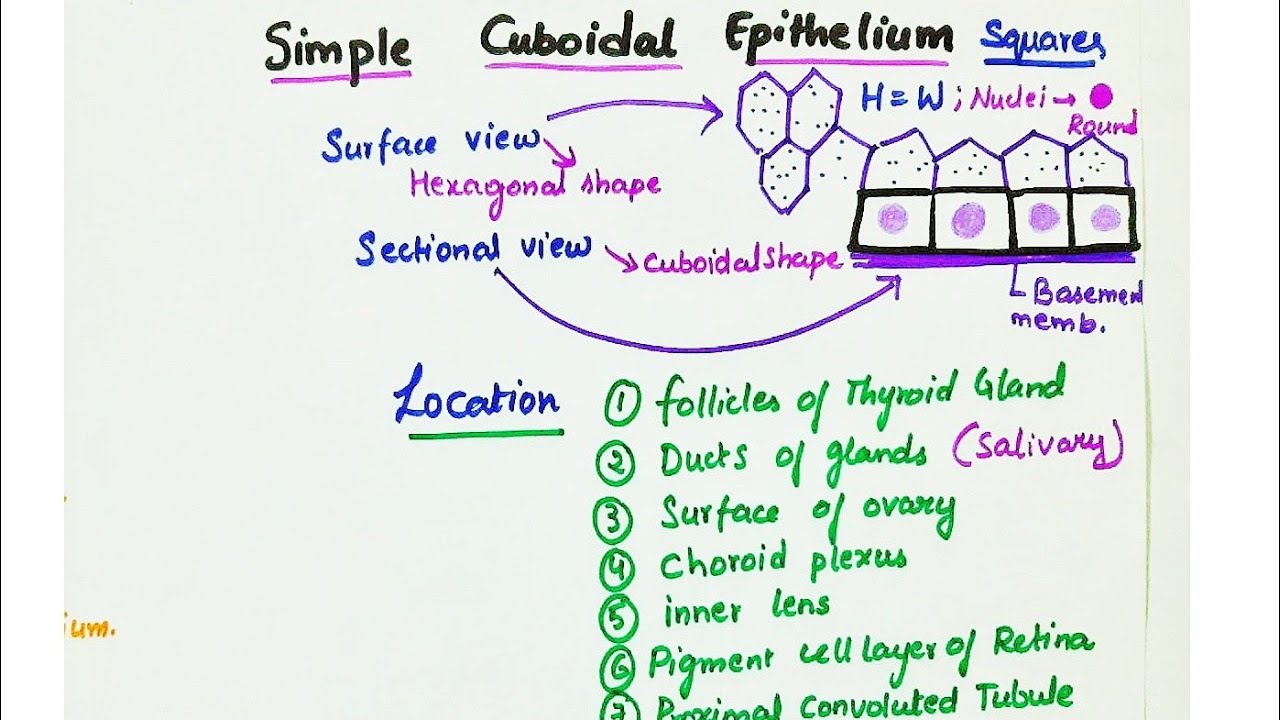 Simple Cuboidal Epithelium Squares
H = W ; Nuclei → Round
Surface view
Hexagonal shape
Sectional view → cuboidal shape
Basement
memb.
Location
① follicles of Thyroid Gland
② Ducts of glands (Salivary)
③ Surface of ovary
④ Choroid plexus
⑤ inner lens
⑥ Pigment cell layer of Retina
⑦ Proximal Convoluted Tubule
ium.